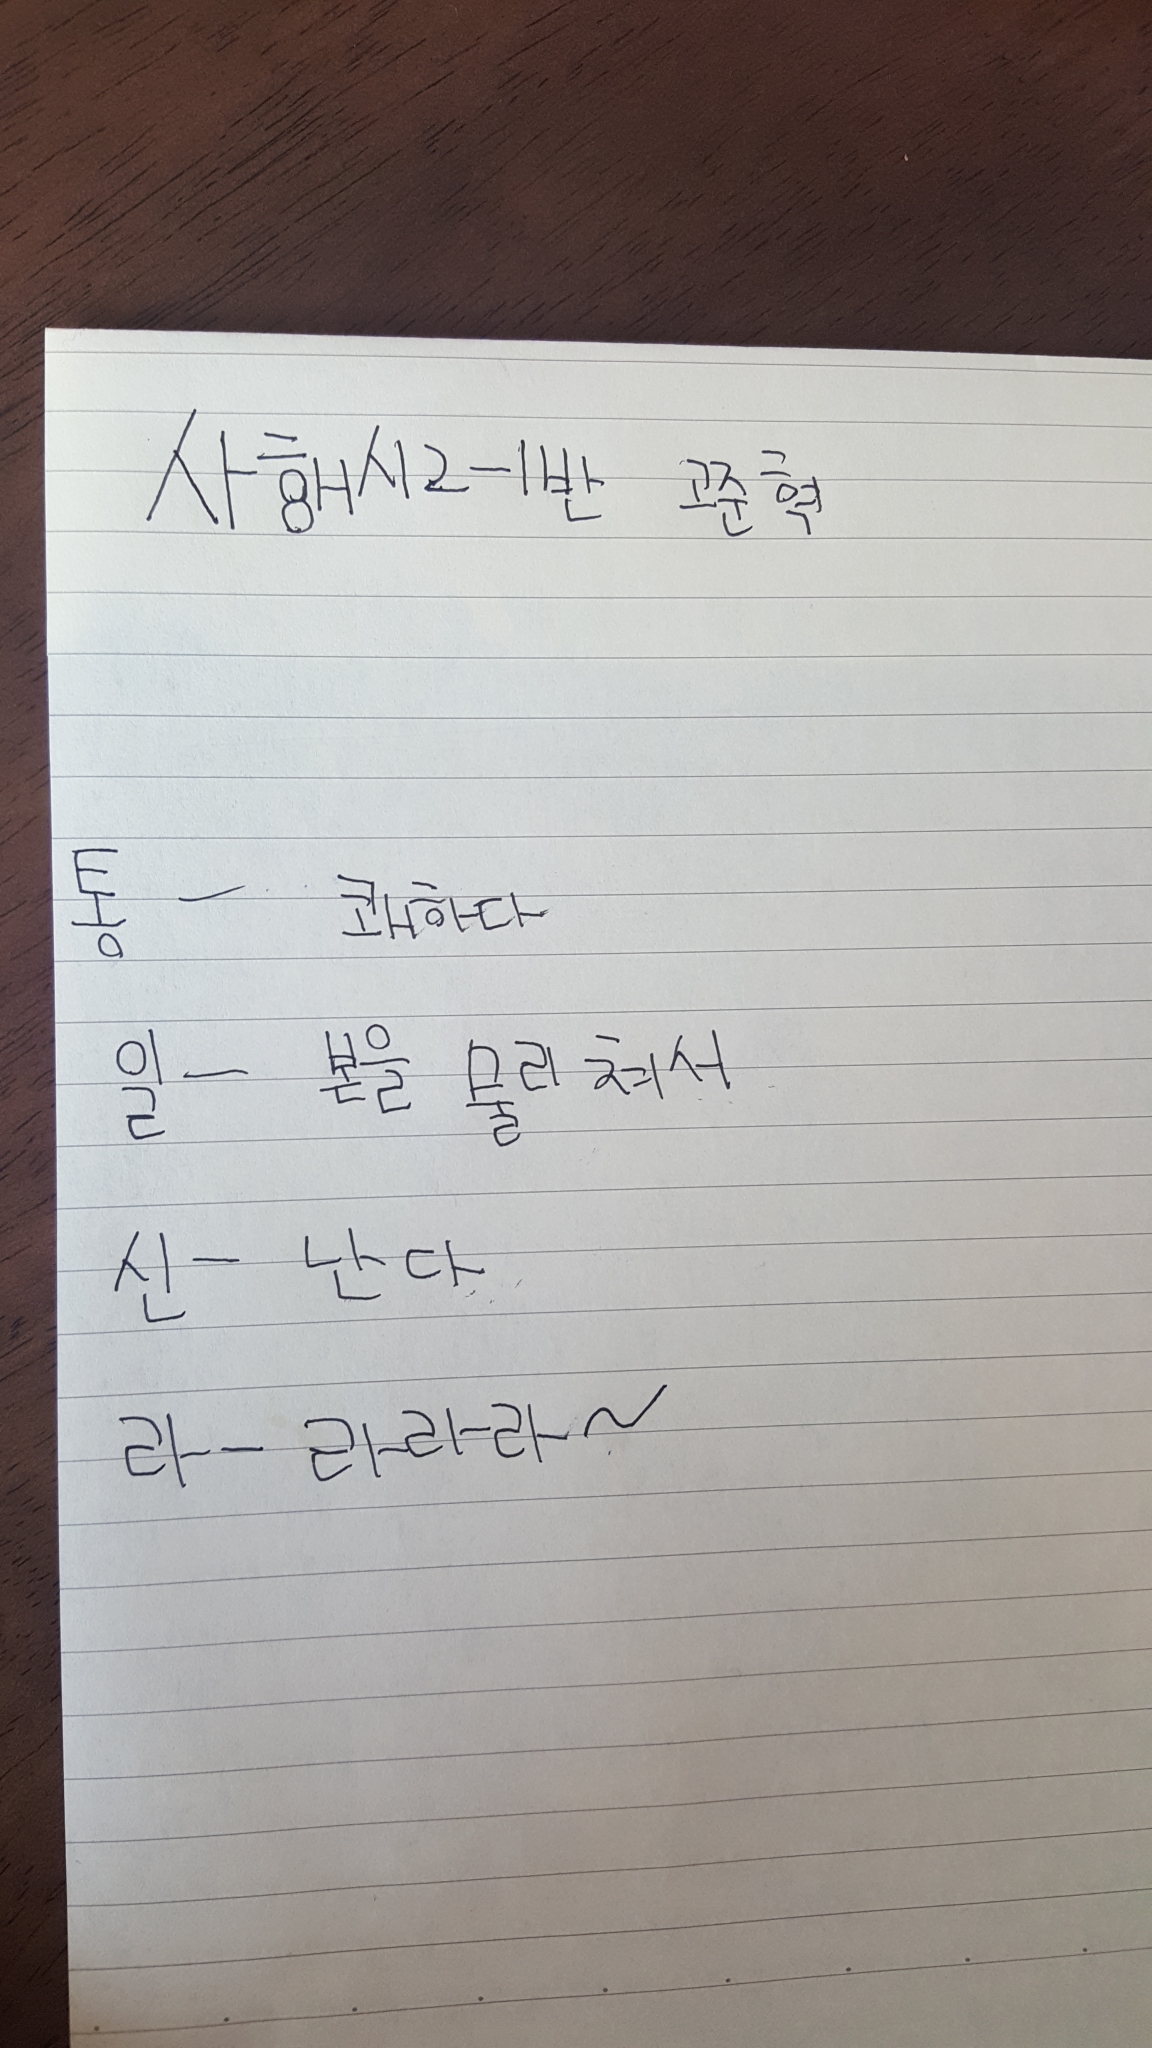 사행시 2-1반 고준혁
통 - 쾌하다
일 - 본을 물리쳐서
신 - 난다
라 - 라라라~